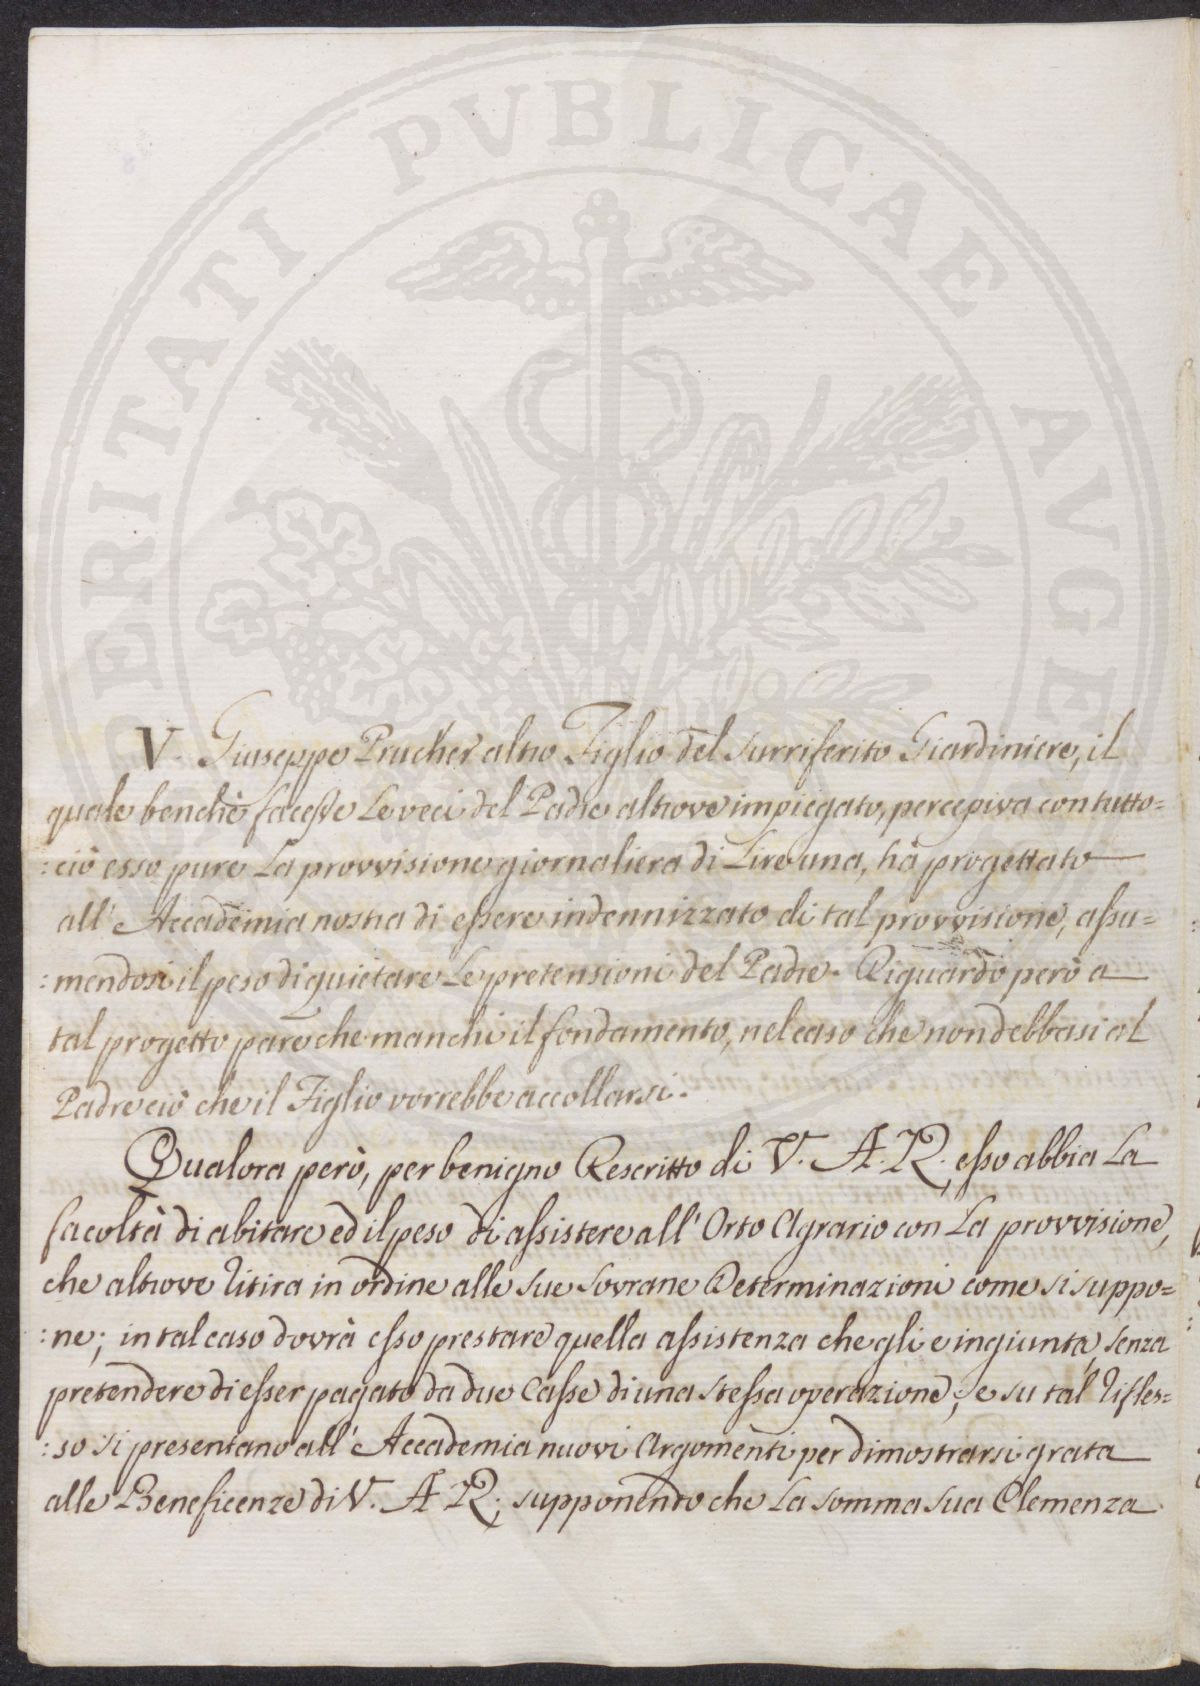 PROSPERITATI PVBLICAE AVGENDAE
V. Giuseppe Prucher altro Figlio del surriferito Giardiniere, il
quale benchè facesse le veci del Padre altrove impiegato, percepiva contutto=
:ciò esso pure la provvisione giornaliera di Lire una, hà progettato
all' Accademia nostra di essere indennizzato di tal provvisione, assu=
:mendosi il peso di quietare le pretensioni del Padre. Riguardo però a
tal progetto pare che manchi il fondamento, nel caso che non debbasi al
Padre ciò che il Figlio vorrebbe accollarsi.
Qualora però, per benigno Rescritto di V. A. R. esso abbia la
facoltà di abitare ed il peso di assistere all' Orto Agrario con la provvisione,
che altrove ritira in ordine alle sue Sovrane Determinazioni come si suppo=
:ne; in tal caso dovrà esso prestare quella assistenza che gli e ingiunta, senza
pretendere di esser pagato da due Casse di una stessa operazione; e su tal rifles=
:so si presentano all' Accademia nuovi Argomenti per dimostrarsi grata
alle Beneficenze di V. A. R. supponendo che la somma sua Clemenza